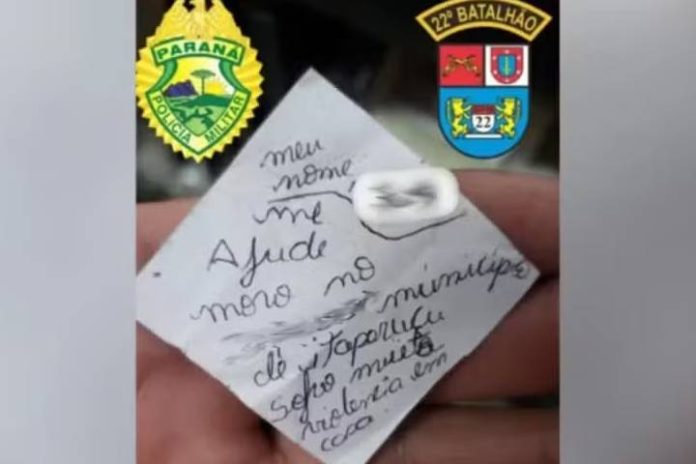 PARANÁ
POLÍCIA MILITAR
22º BATALHÃO
22
meu
nome
me
Ajude
moro no
município
de itaporucu
sofro muita
violencia em
casa